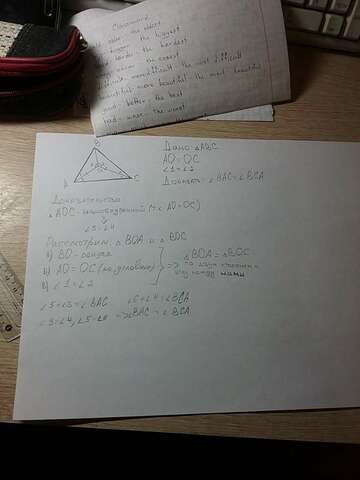 Classword
the oldest
the biggest
harder the hardest
the easiest
more difficult - the most difficult
beautiful - more beautiful - the most beautiful
good - better - the best
bad - worse - the worst
B
A
C
Дано: △ABC
AO=OC
∠1=∠2
Доказать: ∠BAC=∠BCA
Доказательство
△AOC - равнобедренный (т.к. AO=OC)
∠3=∠4
Рассмотрим △BOA и △BOC
1) BO - общая
2) AO=OC (по условию)
3) ∠1=∠2
=> △BOA=△BOC
по двум сторонам и
углу между ними
∠5+∠3=∠BAC ∠6+∠4=∠BCA
∠3=∠4, => ∠BAC=∠BCA